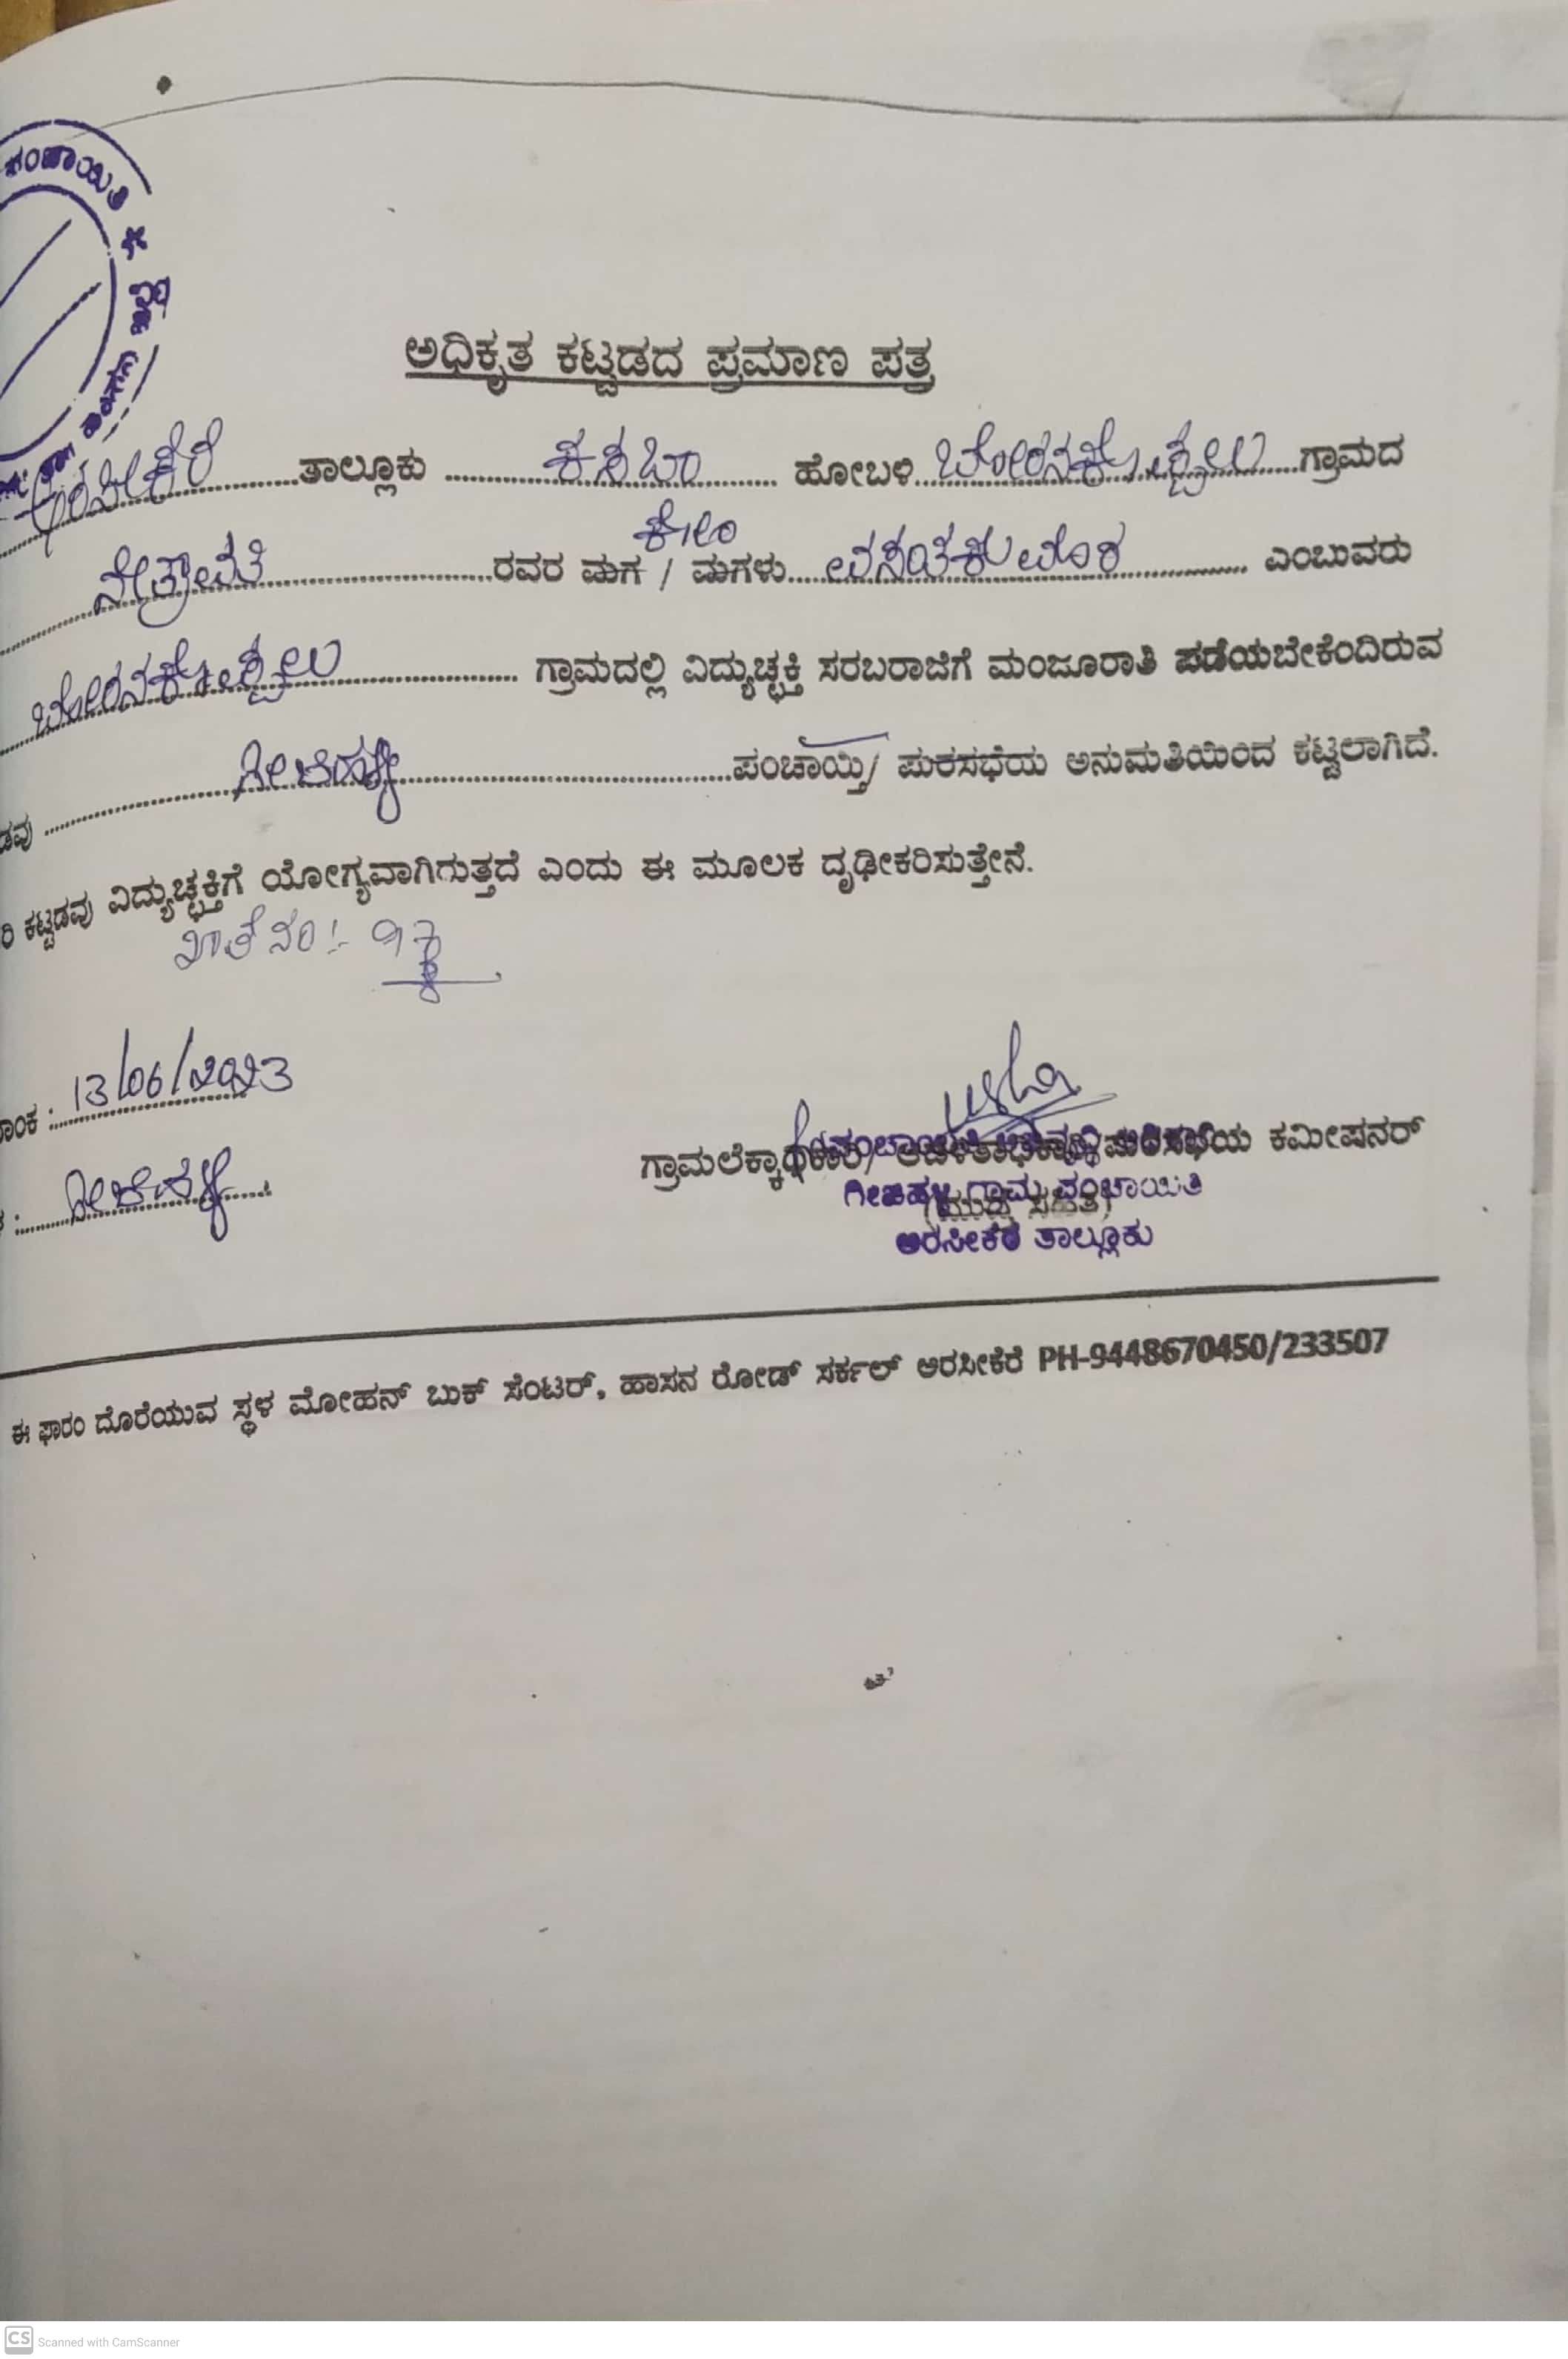 ಪಂಚಾಯಿತಿ
ಅಧಿಕೃತ ಕಟ್ಟಡದ ಪ್ರಮಾಣ ಪತ್ರ
ಅರಸೀಕೆರೆ ತಾಲ್ಲೂಕು ಕಸಬಾ ಹೋಬಳಿ ಗ್ರಾಮದ
ಕೋಂ
ನೇತ್ರಾವತಿ ರವರ ಮಗ / ಮಗಳು ವಸಂತಕುಮಾರ ಎಂಬುವರು
ಗ್ರಾಮದಲ್ಲಿ ವಿದ್ಯುಚ್ಛಕ್ತಿ ಸರಬರಾಜಿಗೆ ಮಂಜೂರಾತಿ ಪಡೆಯಬೇಕೆಂದಿರುವ
ಡವು ಗೀಜಿಹಳ್ಳಿ ಪಂಚಾಯ್ತಿ/ ಪುರಸಭೆಯ ಅನುಮತಿಯಿಂದ ಕಟ್ಟಲಾಗಿದೆ.
ರಿ ಕಟ್ಟಡವು ವಿದ್ಯುಚ್ಛಕ್ತಿಗೆ ಯೋಗ್ಯವಾಗಿರುತ್ತದೆ ಎಂದು ಈ ಮೂಲಕ ದೃಢೀಕರಿಸುತ್ತೇನೆ.
ಖಾತೆ ನಂ :-
ಾಂಕ : 13/06/2023
ಗ್ರಾಮಲೆಕ್ಕಾಧಿಕಾರಿ/ ಪುರಸಭೆಯ ಕಮೀಷನರ್
: ಗೀಜಿಹಳ್ಳಿ
ಗೀಜಿಹಳ್ಳಿ ಗ್ರಾಮ ಪಂಚಾಯಿತಿ
(ಮುದ್ರೆ ಸಹಿತ)
ಅರಸೀಕೆರೆ ತಾಲ್ಲೂಕು
ಈ ಫಾರಂ ದೊರೆಯುವ ಸ್ಥಳ ಮೋಹನ್ ಬುಕ್ ಸೆಂಟರ್, ಹಾಸನ ರೋಡ್ ಸರ್ಕಲ್ ಅರಸೀಕೆರೆ PH-9448670450/233507
CS Scanned with CamScanner